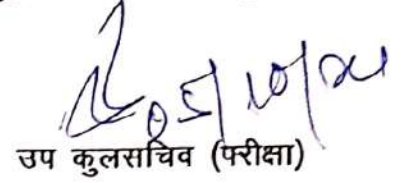 05/10/24
उप कुलसचिव (परीक्षा)